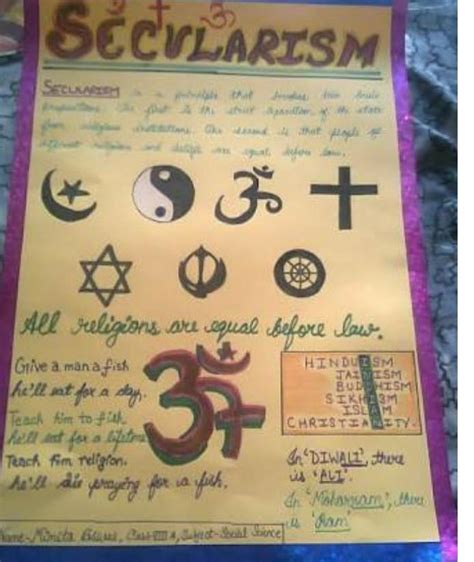 SECULARISM
SECULARISM is a principle that involves two basic
propositions. The first is the strict separation of the state
from religious institutions. The second is that people of
different religions and beliefs are equal before law.
All religions are equal before law.
Give a man a fish
he'll eat for a day.
Teach him to fish
he'll eat for a lifetime
Teach him religion.
he'll die praying for a fish.
HINDUISM
JAINISM
BUDDHISM
SIKHISM
ISLAM
CHRISTIANITY.
In 'DIWALI', there
is 'ALI'.
In 'Moharram', there
is 'Ram'
Name- Class-VIII A, Subject-Social Science